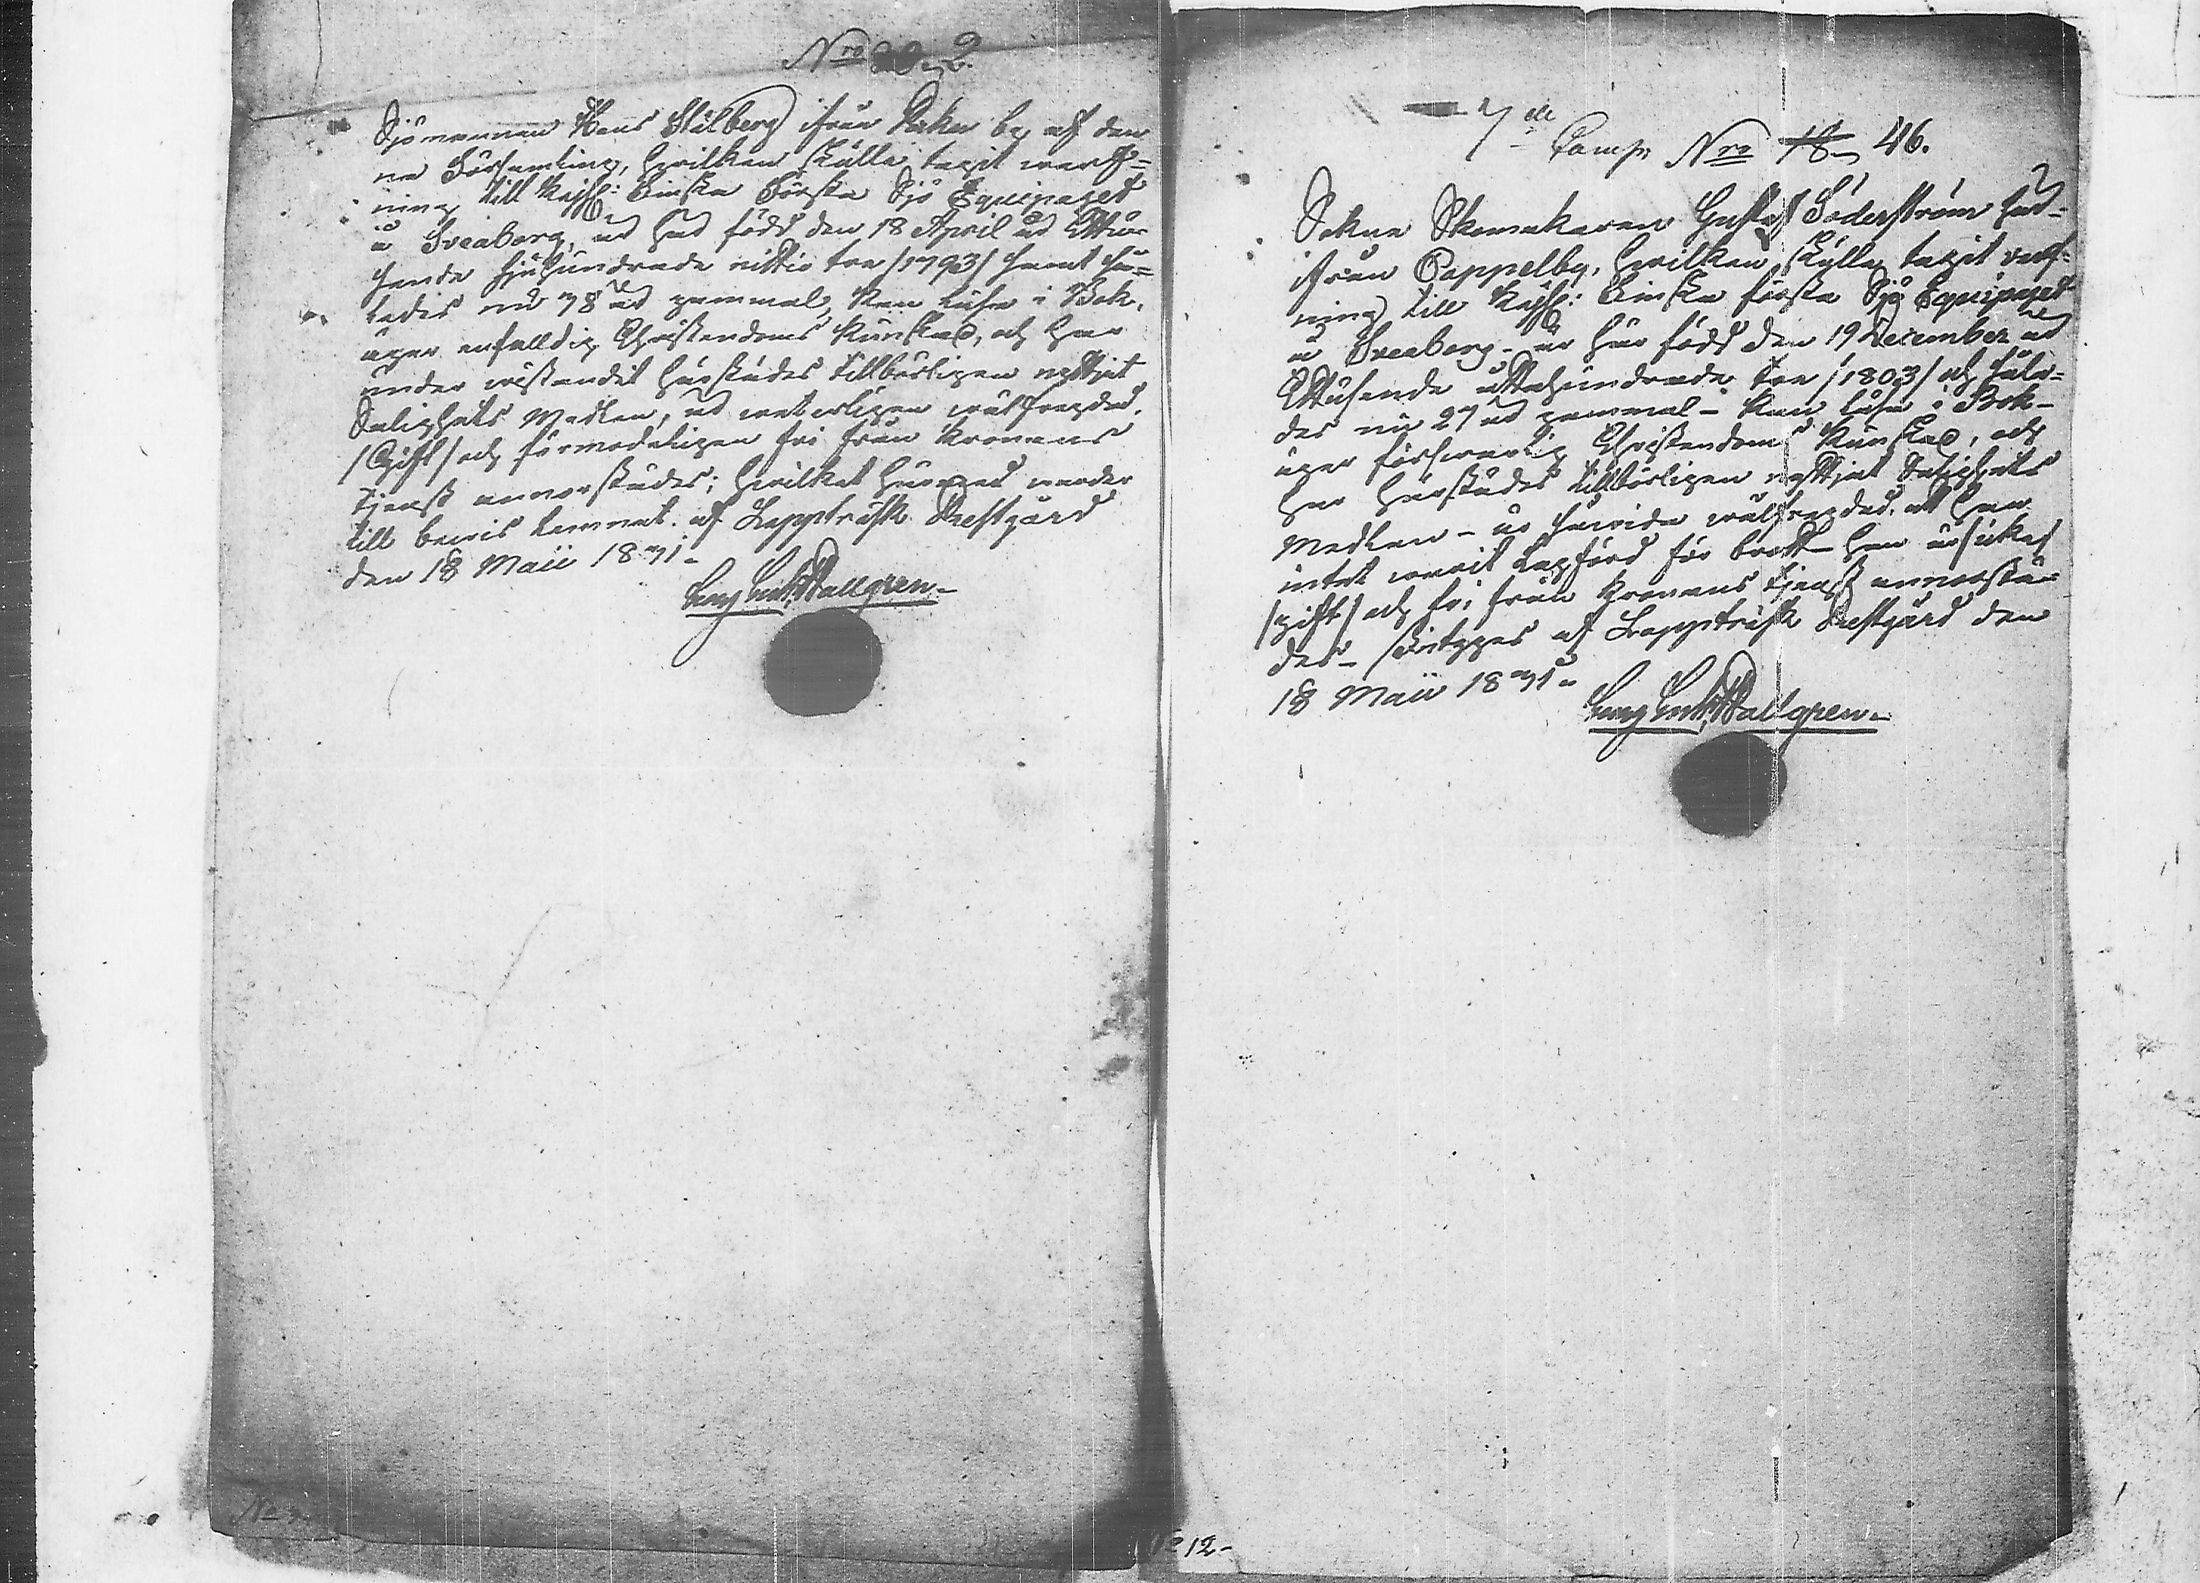 Nro 2.
Sjömannen Hans Stålberg ifrån by af den
na Församling, hvilken skulle tagit werf=
ning till Kejs: Finska Första Sjö Equipaget
å Sveaborg, är här född den 18 April år Ettu=
sende sjuhundrade nittio tre /1793/ samt så=
ledes nu 38 år gammal, kan läsa i Bok,
äger enfalldig Christendoms kunskap, och har
under wistandet härstädes tillbörligen nyttjat
Salighets Medlen, är weterligen wälfreydad,
/Gift/ och förmodeligen fri från Kronans
tjenst annorstädes; hvilket härmed warder
till bewis lemnat. af Lappträsk Prestgård
den 18 Maii 1831.
Wallgren
7de Comp. Nro 18 46.
Sokne Skomakaren Gustaf Söderström här=
ifrån Cappelby, hvilken skulle tagit werf=
ning till Kejs: Finska första Sjö Equipaget
å Sveaborg - är här född den 19 December år
Ettusende åttahundrade tre /1803/ och såle=
des nu 27 år gammal - kan läsa i Bok -
äger försvarlig Christendoms kunskap, och
har härstädes tillbörligen nyttjat Salighets
Medlen - är såwida wälfreydad, att han
intet warit lagförd för brott - han är
/gift/ och fri från Kronans tjenst annorstä=
des - af Lappträsk Prestgård den
18 Maii 1831.
Wallgren
No
12